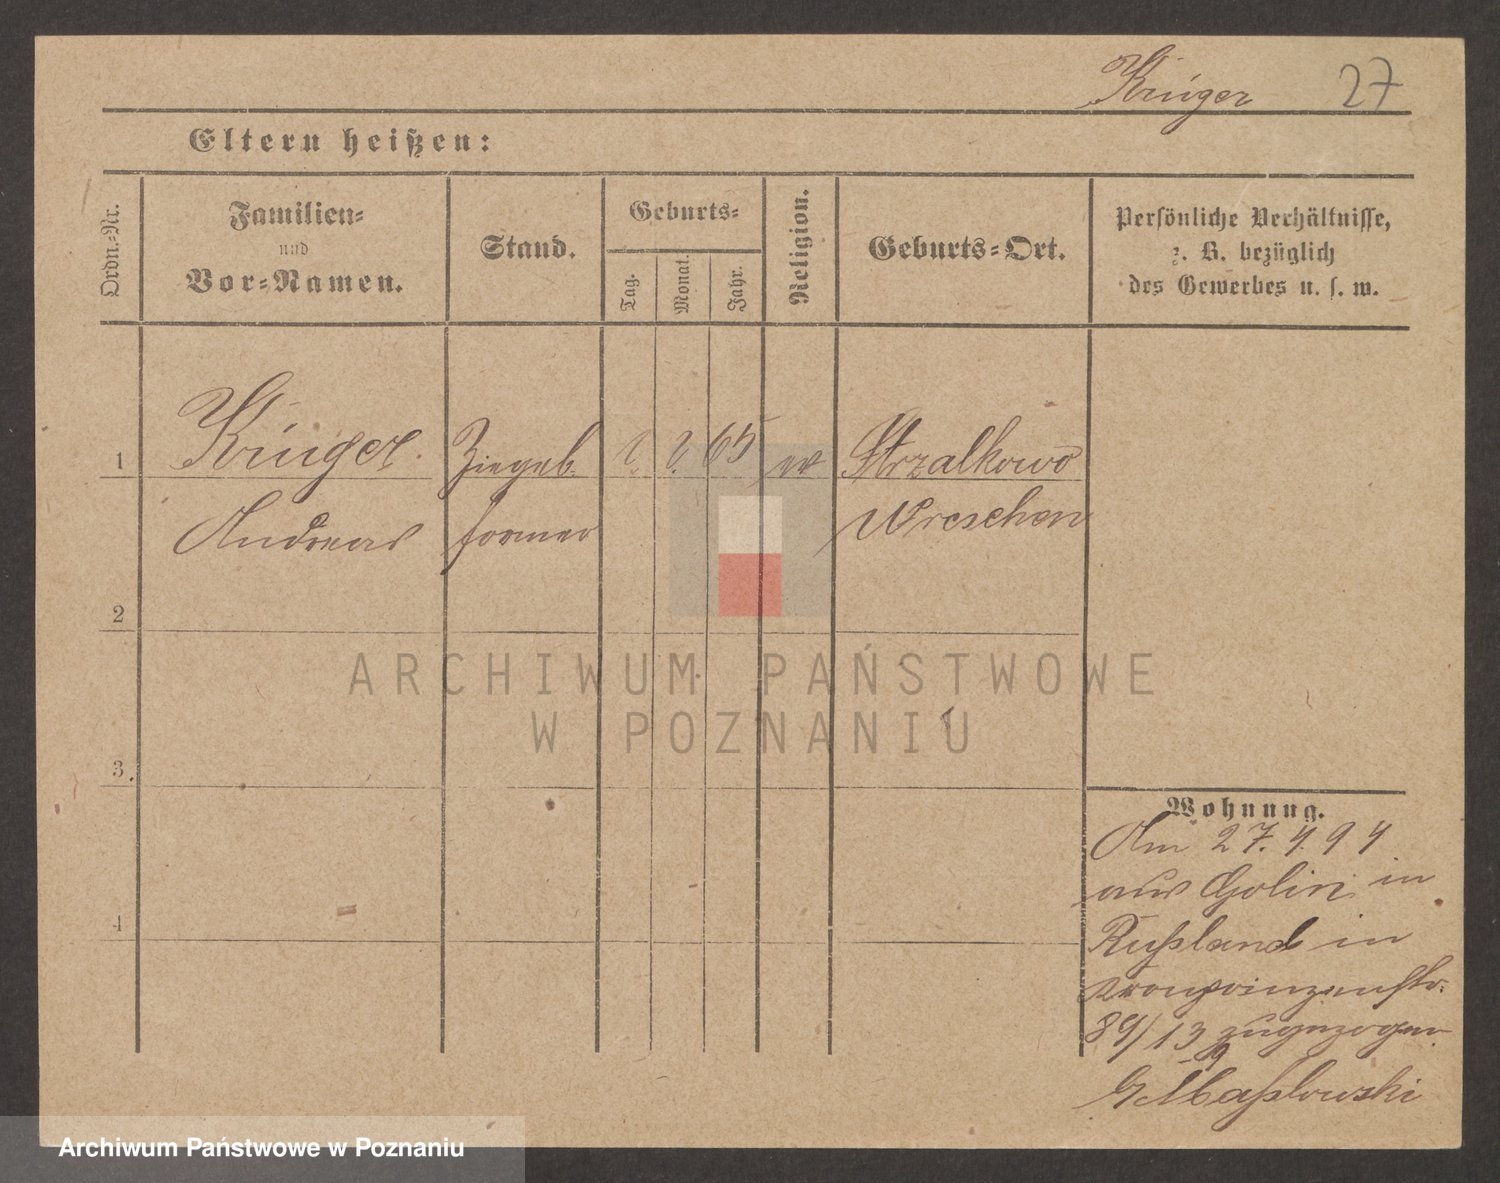 Krüger 27
Eltern heißen:
Ordn.-Nr.
Familien-
und
Vor-Namen.
Stand.
Geburts-
Tag.
Monat.
Jahr.
Religion.
Geburts-Ort.
Persönliche Verhältnisse,
z. B. bezüglich
des Gewerbes u. s. w.
1 Krüger. Ziegel- 65 Strzalkowo
Andreas former Wreschen
2
3.
4
ARCHIWUM PAŃSTWOWE
W POZNANIU
Wohnung.
Am 27. 4. 94
aus Golin in
Rußland in
Kronprinzenstr.
89/13 zugezogen
Maßlowski
Archiwum Państwowe w Poznaniu